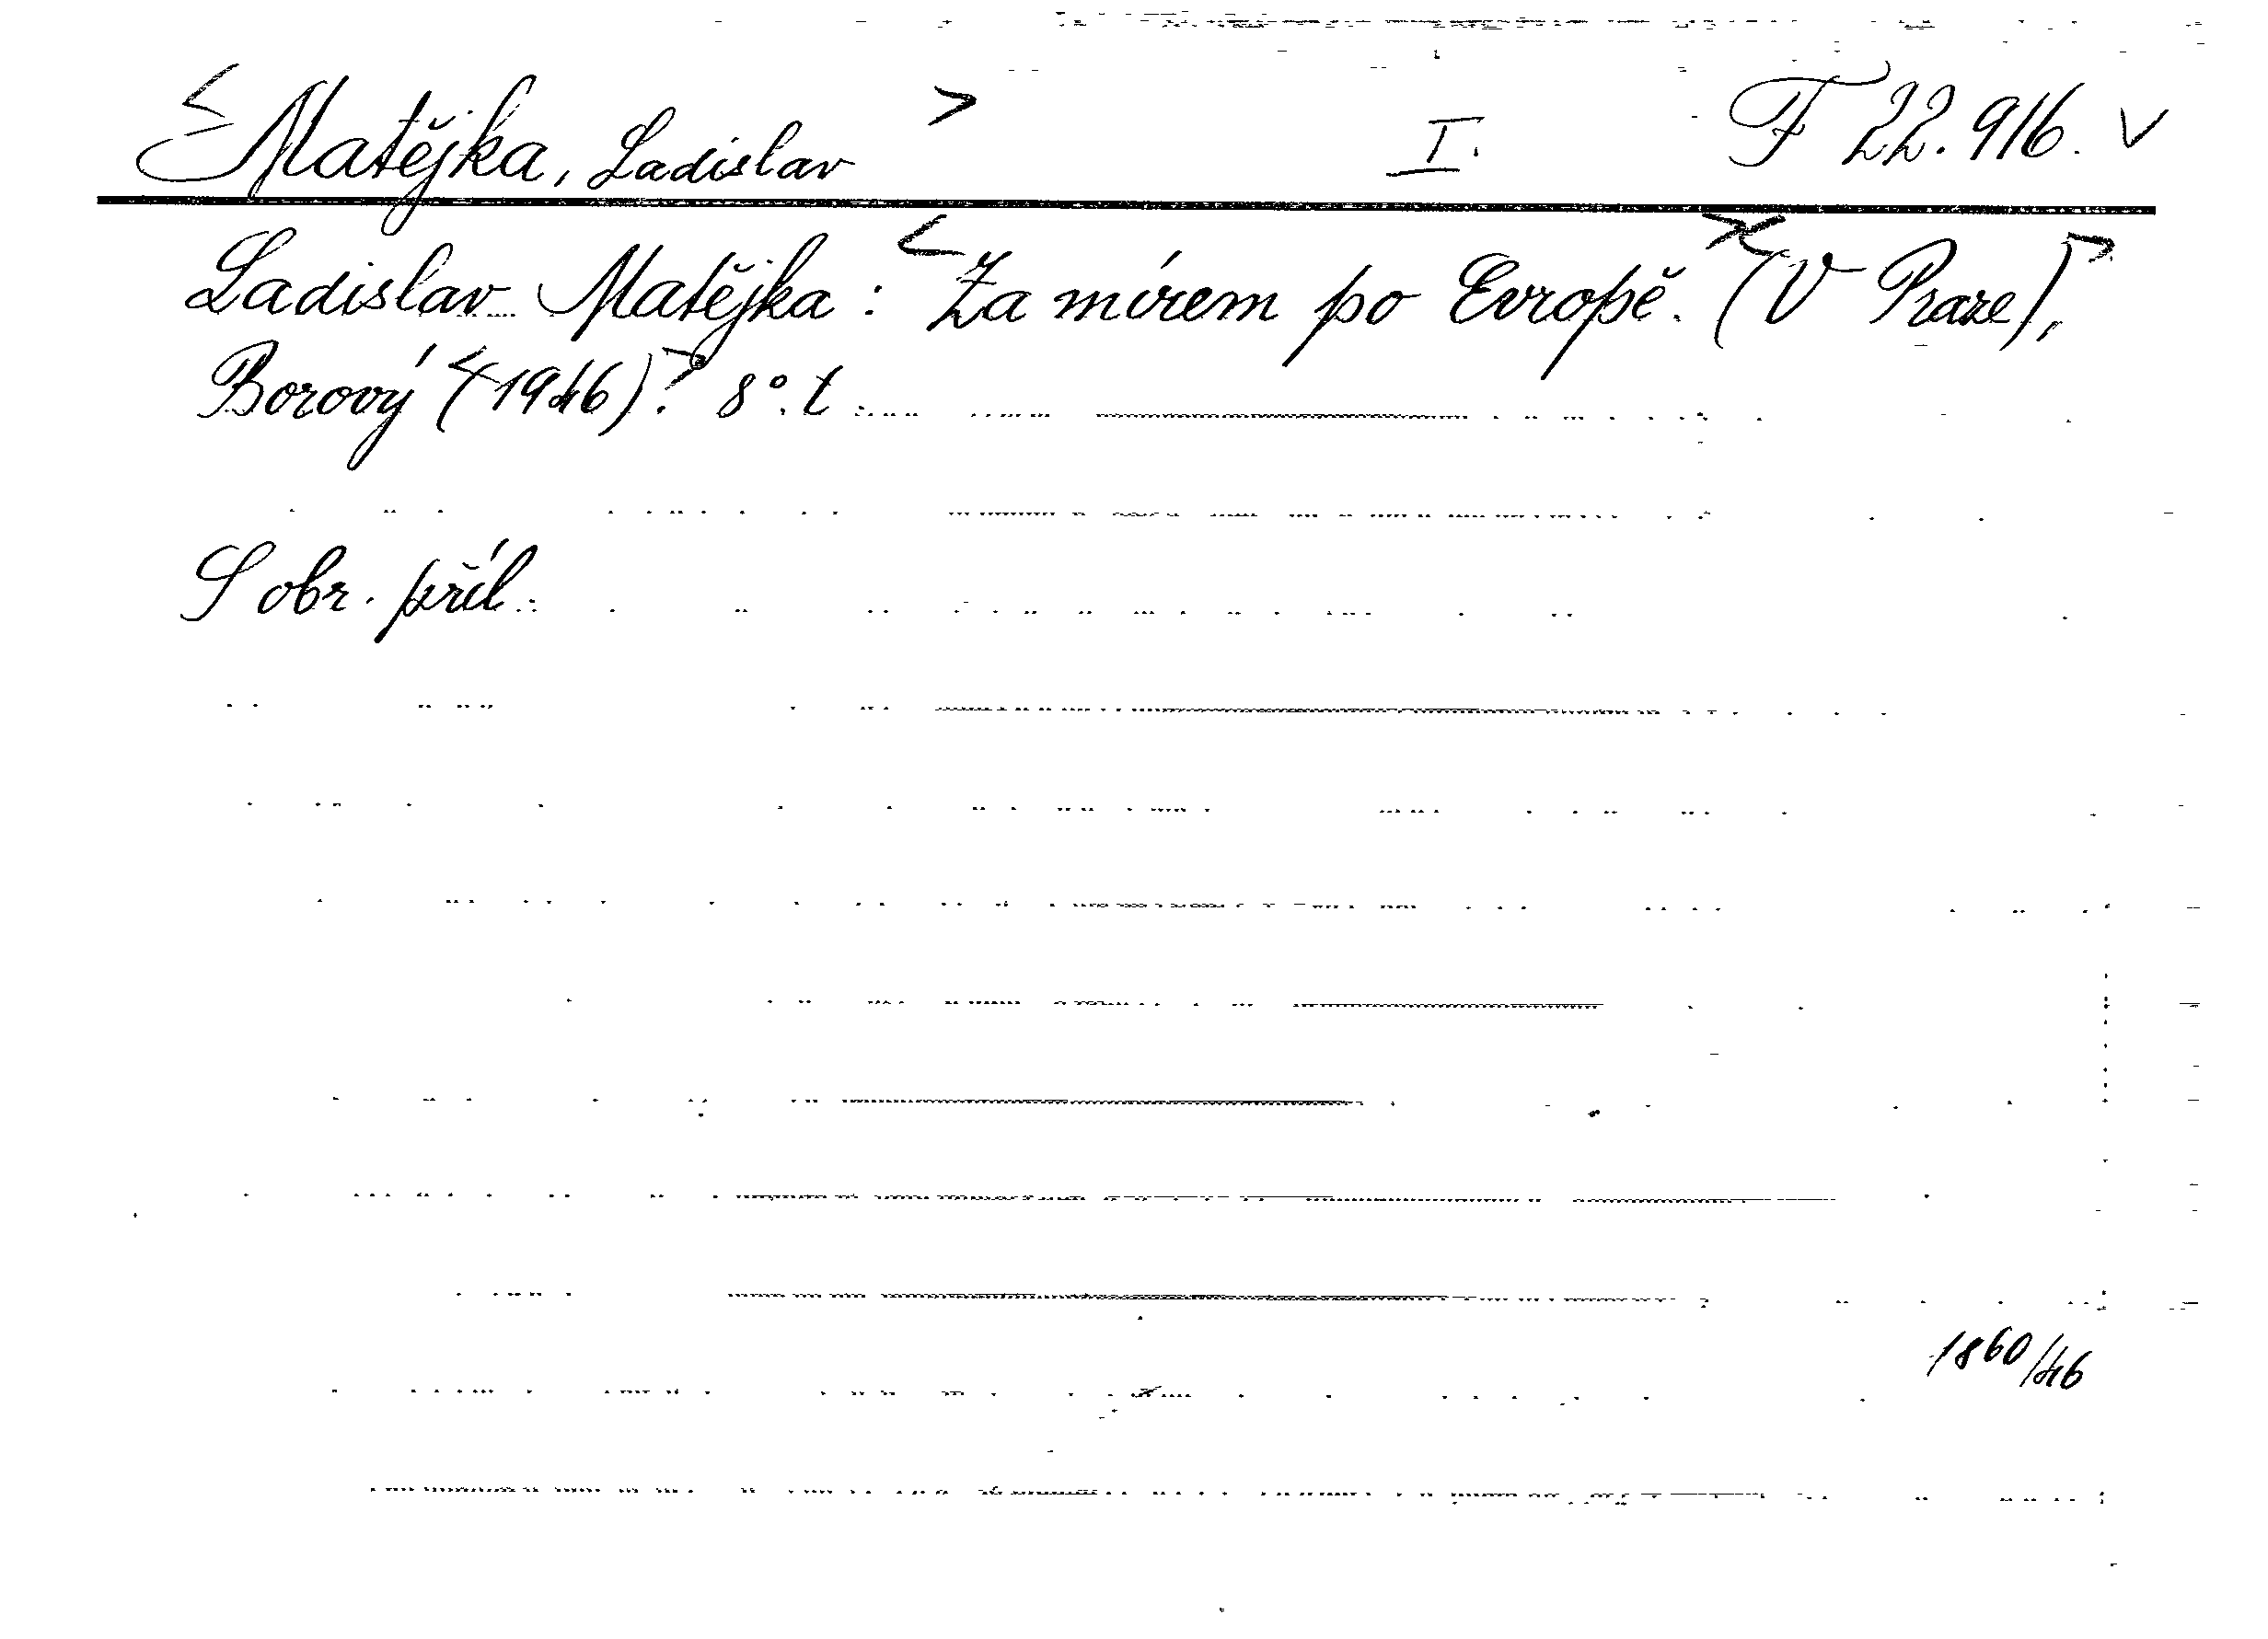 <Matějka, Ladislav> I. F 22.916. v
Ladislav Matějka: <Za mírem po Evropě.> <(V Praze),>
Borový <(1946).> 8°. t
S obr. příl.
1860/46